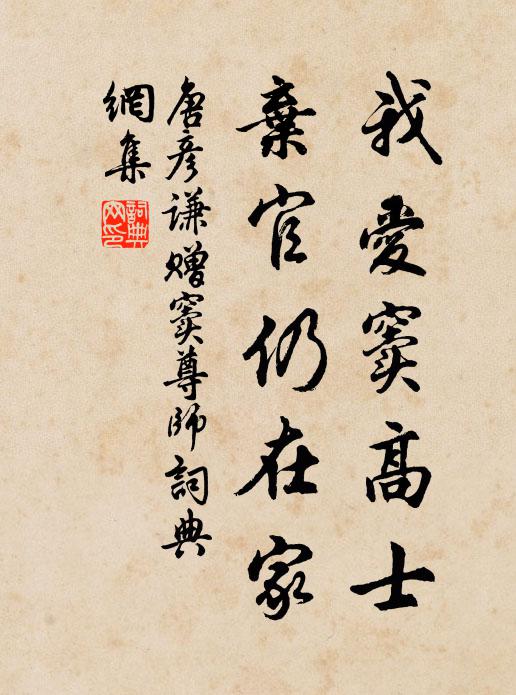 我愛竇高士
棄官仍在家
唐彥謙贈竇尊師詞典
網集
詞典
网印